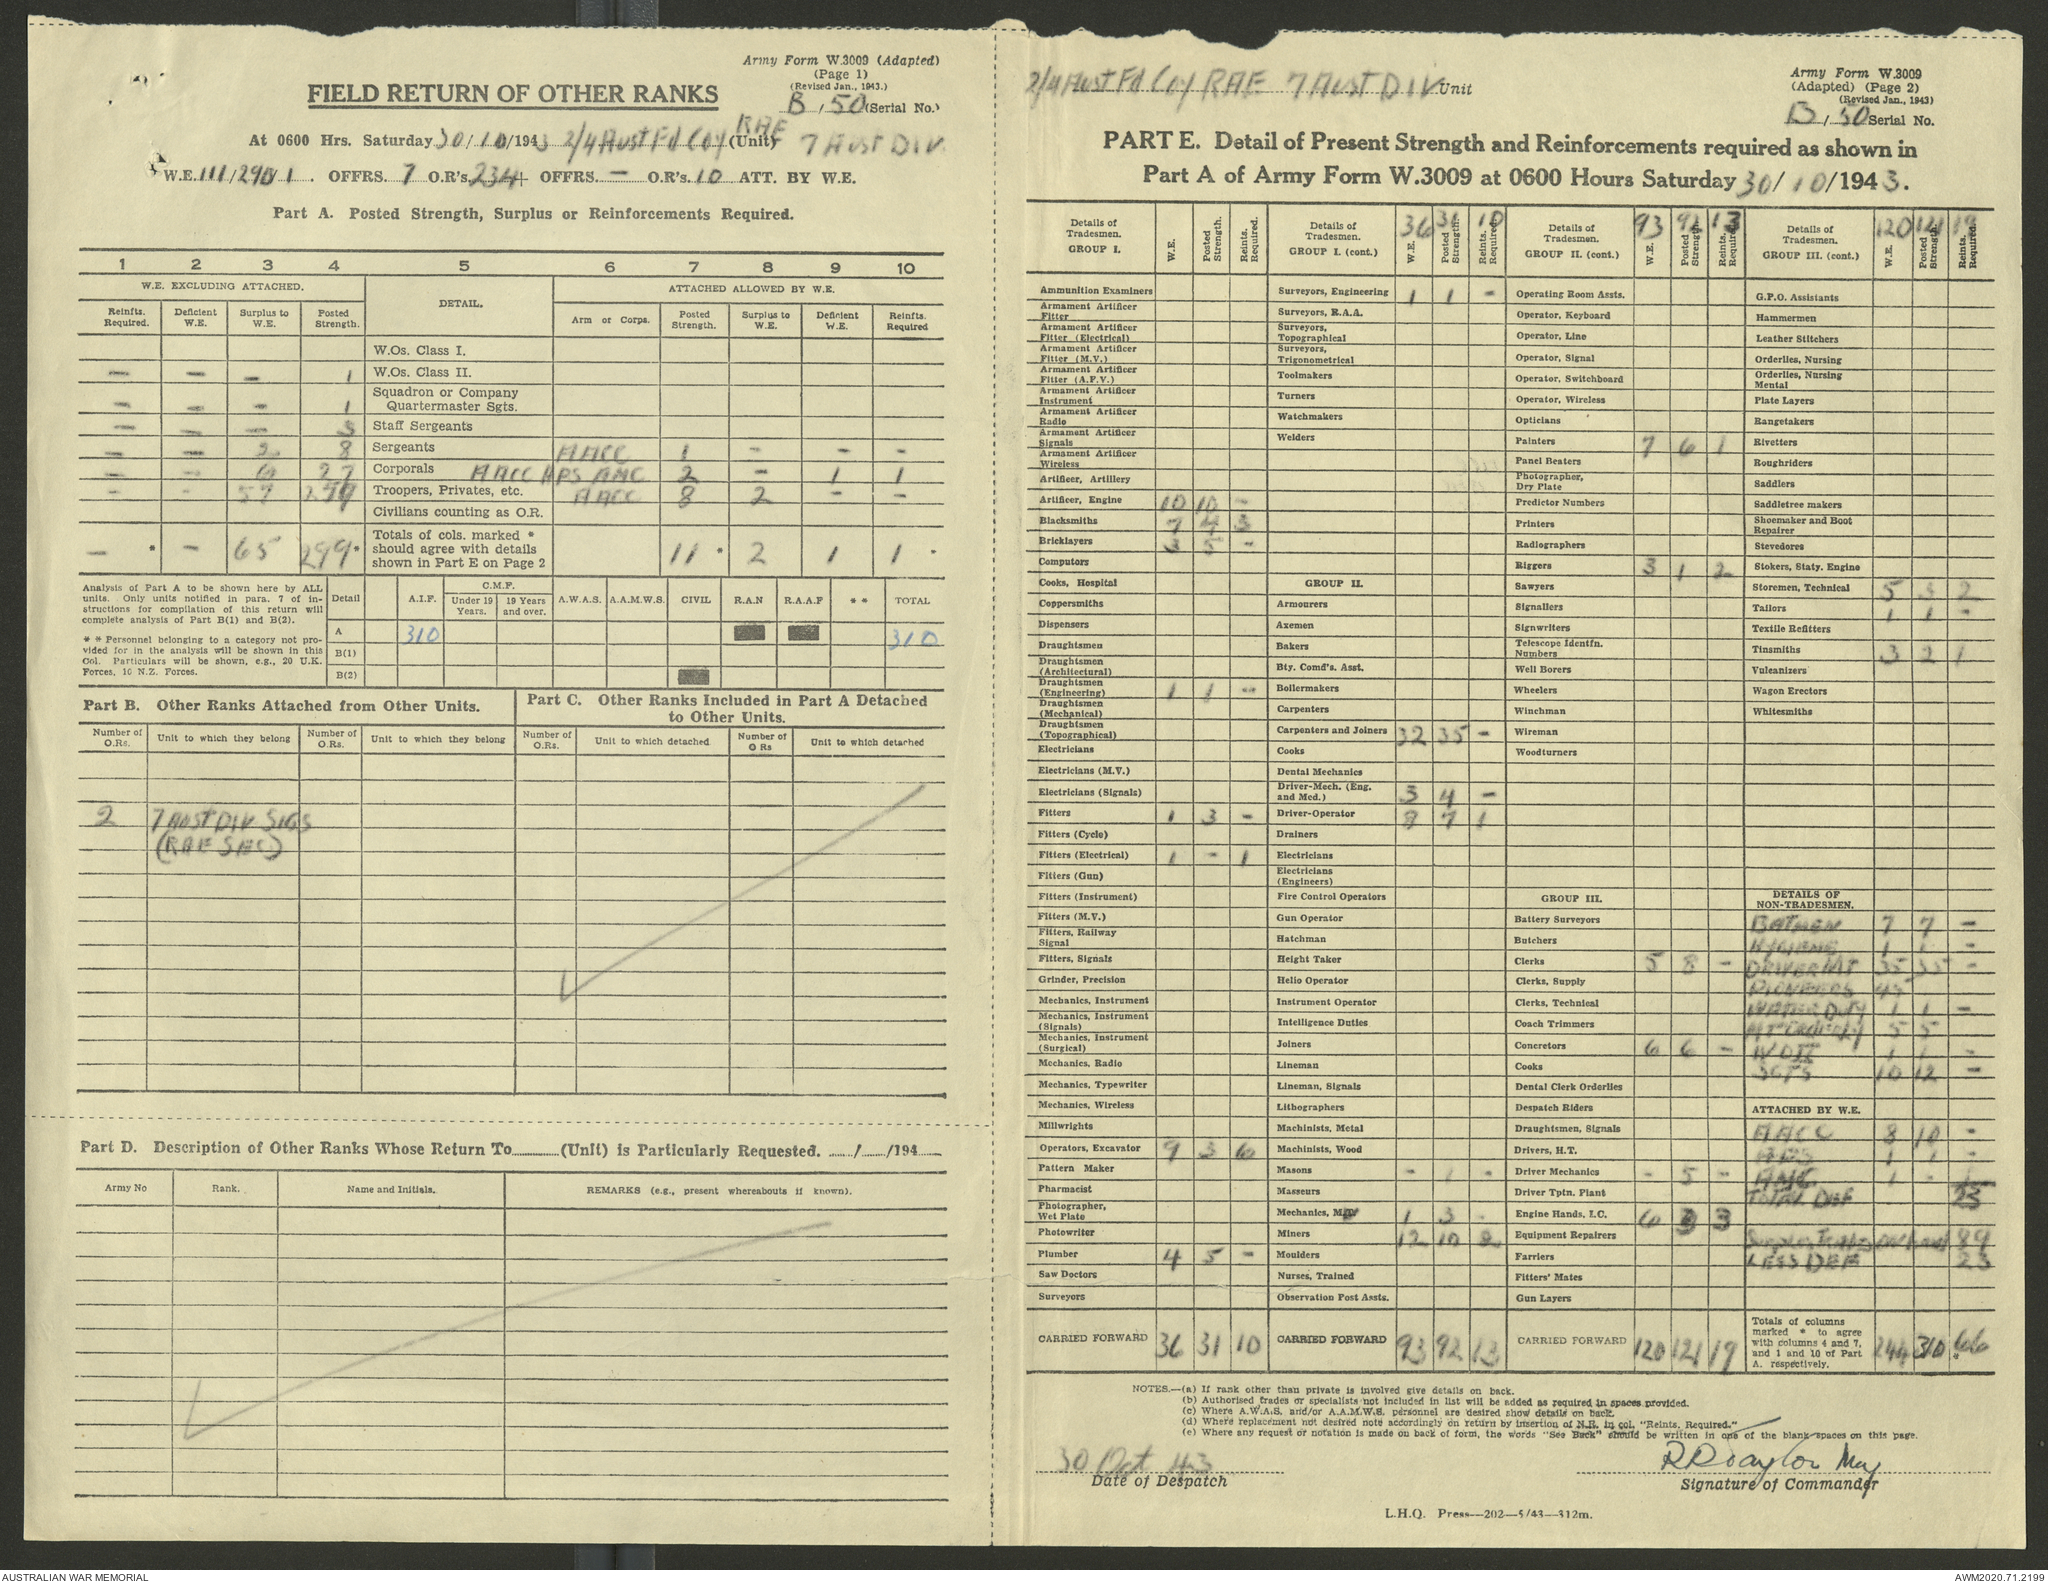 Army Form W.3009 (Adapted)
(Page 1)
(Revised Jan., 1943.)
FIELD RETURN OF OTHER RANKS
B, 50 (Serial No.)
At 0600 Hrs. Saturday 30/10/1943 2/4 Aust Fd Coy RAE (Unit) 7 AUST DIV.
W.E. III/290/1. OFFRS. 7 O.R's. 234 OFFRS. - O.R's. 10 ATT. BY W.E.
Part A. Posted Strength, Surplus or Reinforcements Required.
1 2 3 4 5 6 7 8 9 10
W.E. EXCLUDING ATTACHED. DETAIL. ATTACHED ALLOWED BY W.E.
Reinfts. Required. Deficient W.E. Surplus to W.E. Posted Strength. Arm or Corps. Posted Strength. Surplus to W.E. Deficient W.E. Reinfts. Required
W.Os. Class I.
- - - 1 W.Os. Class II.
- - - 1 Squadron or Company Quartermaster Sgts.
- - - 3 Staff Sergeants
- - 2 8 Sergeants AACC 1 - - -
- - 6 27 Corporals AACC APS AMC 2 - 1 1
- - 57 Troopers, Privates, etc. AACC 8 2 - -
Civilians counting as O.R.
- * - 65 299* Totals of cols. marked * should agree with details shown in Part E on Page 2 11 * 2 1 1 *
Analysis of Part A to be shown here by ALL units. Only units notified in para. 7 of instructions for compilation of this return will complete analysis of Part B(1) and B(2).
* * Personnel belonging to a category not provided for in the analysis will be shown in this Col. Particulars will be shown, e.g., 20 U.K. Forces, 10 N.Z. Forces.
Detail A.I.F. C.M.F. Under 19 Years. 19 Years and over. A.W.A.S. A.A.M.W.S. CIVIL R.A.N R.A.A.F * * TOTAL
A 310 310
B(1)
B(2)
Part B. Other Ranks Attached from Other Units.
Part C. Other Ranks Included in Part A Detached to Other Units.
Number of O.Rs. Unit to which they belong Number of O.Rs. Unit to which they belong Number of O.Rs. Unit to which detached Number of O Rs Unit to which detached
2 7 AUST DIV SIGS
(RAE SEC)
Part D. Description of Other Ranks Whose Return To (Unit) is Particularly Requested. / /194
Army No Rank. Name and Initials. REMARKS (e.g., present whereabouts if known).
2/4 Aust Fd Coy RAE 7 AUST DIV Unit
Army Form W.3009
(Adapted) (Page 2)
(Revised Jan., 1943)
B, 50 Serial No.
PART E. Detail of Present Strength and Reinforcements required as shown in
Part A of Army Form W.3009 at 0600 Hours Saturday 30/10/1943.
Details of Tradesmen. GROUP I. W.E. Posted Strength. Reints. Required.
Ammunition Examiners
Armament Artificer Fitter
Armament Artificer Fitter (Electrical)
Armament Artificer Fitter (M.V.)
Armament Artificer Fitter (A.F.V.)
Armament Artificer Instrument
Armament Artificer Radio
Armament Artificer Signals
Armament Artificer Wireless
Artificer, Artillery
Artificer, Engine 10 10 -
Blacksmiths 7 4 3
Bricklayers 3 5 -
Computors
Cooks, Hospital
Coppersmiths
Dispensers
Draughtsmen
Draughtsmen (Architectural)
Draughtsmen (Engineering) 1 1 -
Draughtsmen (Mechanical)
Draughtsmen (Topographical)
Electricians
Electricians (M.V.)
Electricians (Signals)
Fitters 1 3 -
Fitters (Cycle)
Fitters (Electrical) 1 - 1
Fitters (Gun)
Fitters (Instrument)
Fitters (M.V.)
Fitters, Railway Signal
Fitters, Signals
Grinder, Precision
Mechanics, Instrument
Mechanics, Instrument (Signals)
Mechanics, Instrument (Surgical)
Mechanics, Radio
Mechanics, Typewriter
Mechanics, Wireless
Millwrights
Operators, Excavator 9 3 6
Pattern Maker
Pharmacist
Photographer, Wet Plate
Photowriter
Plumber 4 5 -
Saw Doctors
Surveyors
CARRIED FORWARD 36 31 10
Details of Tradesmen. GROUP I. (cont.) 36 31 10 W.E. Posted Strength. Reints. Required.
Surveyors, Engineering 1 1 -
Surveyors, R.A.A.
Surveyors, Topographical
Surveyors, Trigonometrical
Toolmakers
Turners
Watchmakers
Welders
GROUP II.
Armourers
Axemen
Bakers
Bty. Comd's. Asst.
Boilermakers
Carpenters
Carpenters and Joiners 32 35 -
Cooks
Dental Mechanics
Driver-Mech. (Eng. and Med.) 3 4 -
Driver-Operator 8 7 1
Drainers
Electricians
Electricians (Engineers)
Fire Control Operators
Gun Operator
Hatchman
Height Taker
Helio Operator
Instrument Operator
Intelligence Duties
Joiners
Lineman
Lineman, Signals
Lithographers
Machinists, Metal
Machinists, Wood
Masons - 1 -
Masseurs
Mechanics, MV 1 3 -
Miners 12 10 2
Moulders
Nurses, Trained
Observation Post Assts.
CARRIED FORWARD 93 92 13
Details of Tradesmen. GROUP II. (cont.) 93 92 13 W.E. Posted Strength. Reints. Required.
Operating Room Assts.
Operator, Keyboard
Operator, Line
Operator, Signal
Operator, Switchboard
Operator, Wireless
Opticians
Painters 7 6 1
Panel Beaters
Photographer, Dry Plate
Predictor Numbers
Printers
Radiographers
Riggers 3 1 2
Sawyers
Signallers
Signwriters
Telescope Identfn. Numbers
Well Borers
Wheelers
Winchman
Wireman
Woodturners
GROUP III.
Battery Surveyors
Butchers
Clerks 5 8 -
Clerks, Supply
Clerks, Technical
Coach Trimmers
Concretors 6 6 -
Cooks
Dental Clerk Orderlies
Despatch Riders
Draughtsmen, Signals
Drivers, H.T.
Driver Mechanics - 5 -
Driver Tptn. Plant
Engine Hands, I.C. 6 3 3
Equipment Repairers
Farriers
Fitters' Mates
Gun Layers
CARRIED FORWARD 120 121 19
Details of Tradesmen. GROUP III. (cont.) 120 121 19 W.E. Posted Strength. Reints. Required.
G.P.O. Assistants
Hammermen
Leather Stitchers
Orderlies, Nursing
Orderlies, Nursing Mental
Plate Layers
Rangetakers
Rivetters
Roughriders
Saddlers
Saddletree makers
Shoemaker and Boot Repairer
Stevedores
Stokers, Staty. Engine
Storemen, Technical 5 3 2
Tailors 1 1 -
Textile Refitters
Tinsmiths 3 2 1
Vulcanizers
Wagon Erectors
Whitesmiths
DETAILS OF NON-TRADESMEN.
BATMEN 7 7 -
HYGIENE 1 1 -
DRIVER MT 35 35 -
PIONEERS 45
WATER DUTY 1 1 -
5 5
WO II 1 1 -
SGTS 10 12 -
ATTACHED BY W.E.
AACC 8 10 -
APS 1 1 -
AMC 1 - 1
TOTAL DEF 23
89
LESS DEF 23
Totals of columns marked * to agree with columns 4 and 7, and 1 and 10 of Part A. respectively. 244 310 66 *
NOTES.—(a) If rank other than private is involved give details on back.
(b) Authorised trades or specialists not included in list will be added as required in spaces provided.
(c) Where A.W.A.S. and/or A.A.M.W.S. personnel are desired show details on back.
(d) Where replacement not desired note accordingly on return by insertion of N.R. in col. "Reints. Required."
(e) Where any request or notation is made on back of form, the words "See Back" should be written in one of the blank spaces on this page.
30 Oct 43
Date of Despatch
RR Taylor Maj
Signature of Commander
L.H.Q. Press—202—5/43—312m.
AUSTRALIAN WAR MEMORIAL
AWM2020.71.2199